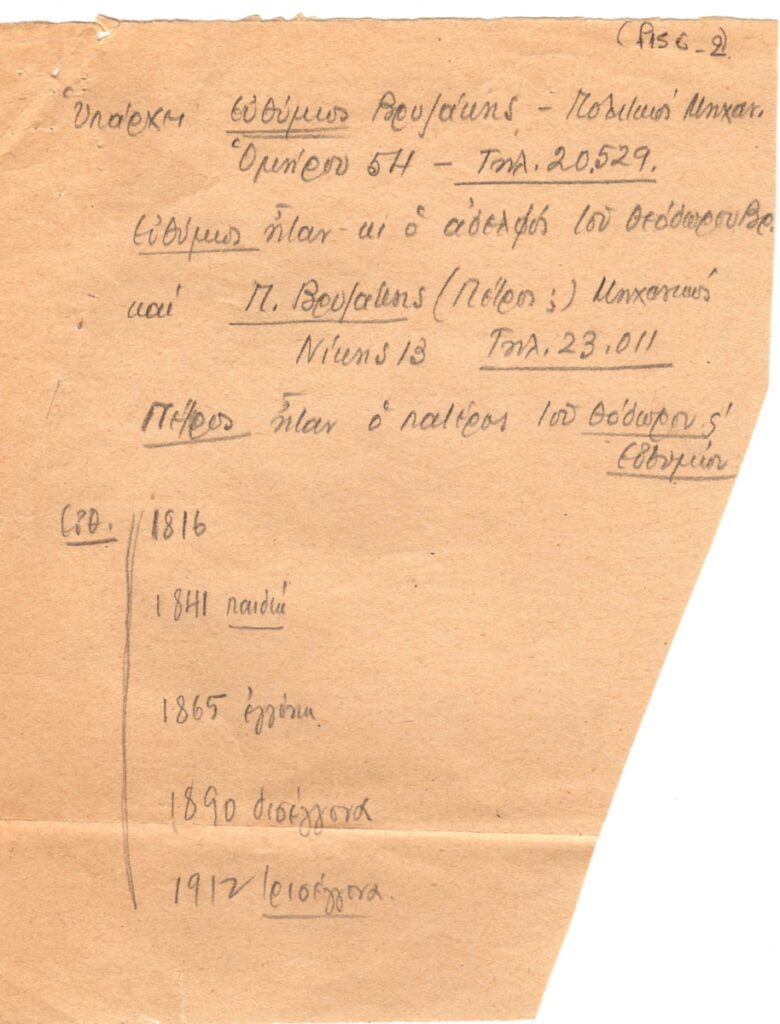 Ὑπάρχει Εὐθύμιος Βρυζάκης – Πολιτικός Μηχαν.
Ὁμήρου 54 – Τηλ. 20,529.
Εὐθύμιος ἦταν κι ὁ ἀδελφός τοῦ Θεόδωρου Βρ.
καί Π. Βρυζάκης (Πέτρος ;) Μηχανικός
Νίκης 13 Τηλ. 23.011
Πέτρος ἦταν ὁ πατέρας τοῦ Θόδωρου
Εὐθυμίου
Εὐθ. 1816
1841 παιδιά
1865 ἐγγόνια
1890 δισέγγονα
1912 τρισέγγονα.